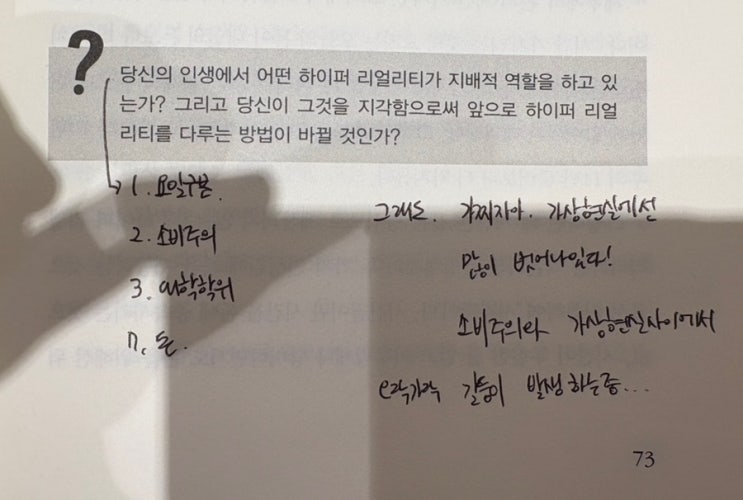 ?
당신의 인생에서 어떤 하이퍼 리얼리티가 지배적 역할을 하고 있
는가? 그리고 당신이 그것을 지각함으로써 앞으로 하이퍼 리얼
리티를 다루는 방법이 바뀔 것인가?
1. 요일구분.
2. 소비주의
3. 대학학위
n. 돈.
그래도. 가짜자아. 가상현실에선
많이 벗어나있다!
소비주의와 가상현실사이에서
갈등이 발생하는중...
73